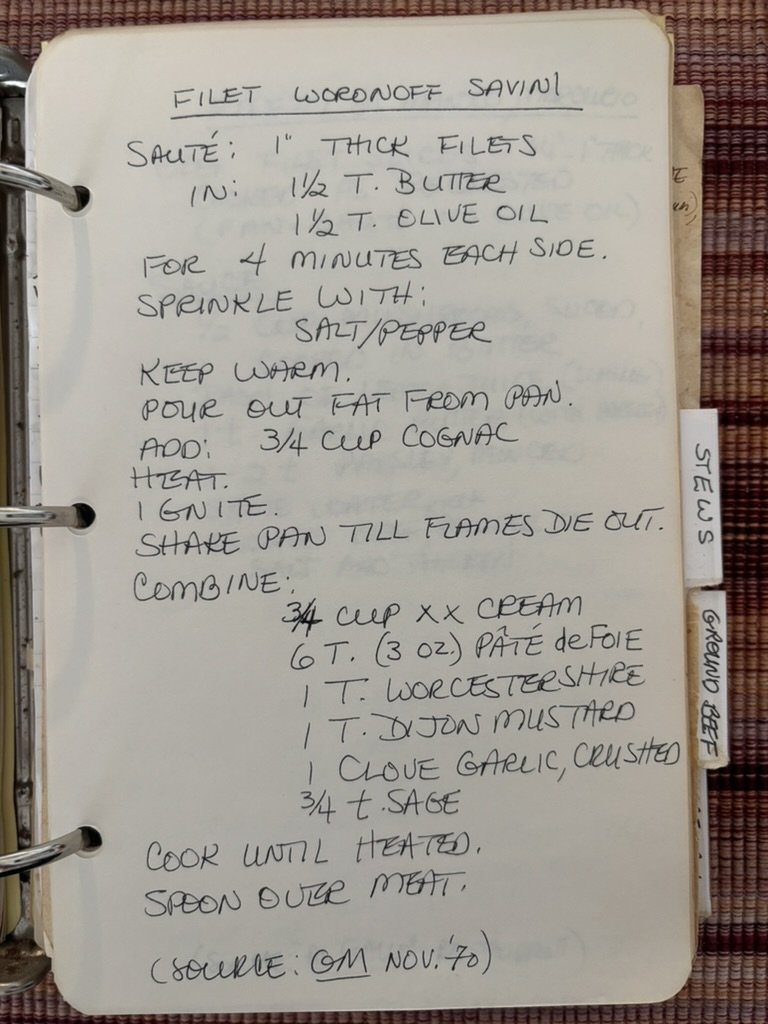 FILET WORONOFF SAVINI
SAUTÉ: 1" THICK FILETS
IN: 1 1/2 T. BUTTER
1 1/2 T. OLIVE OIL
FOR 4 MINUTES EACH SIDE.
SPRINKLE WITH:
SALT/PEPPER
KEEP WARM.
POUR OUT FAT FROM PAN.
ADD: 3/4 CUP COGNAC
HEAT.
IGNITE.
SHAKE PAN TILL FLAMES DIE OUT.
COMBINE:
3/4 CUP XX CREAM
6 T. (3 OZ.) PÂTÉ de FOIE
1 T. WORCESTERSHIRE
1 T. DIJON MUSTARD
1 CLOVE GARLIC, CRUSHED
3/4 t. SAGE
COOK UNTIL HEATED.
SPOON OVER MEAT.
(SOURCE: GM NOV. '70)
STEWS
GROUND BEEF